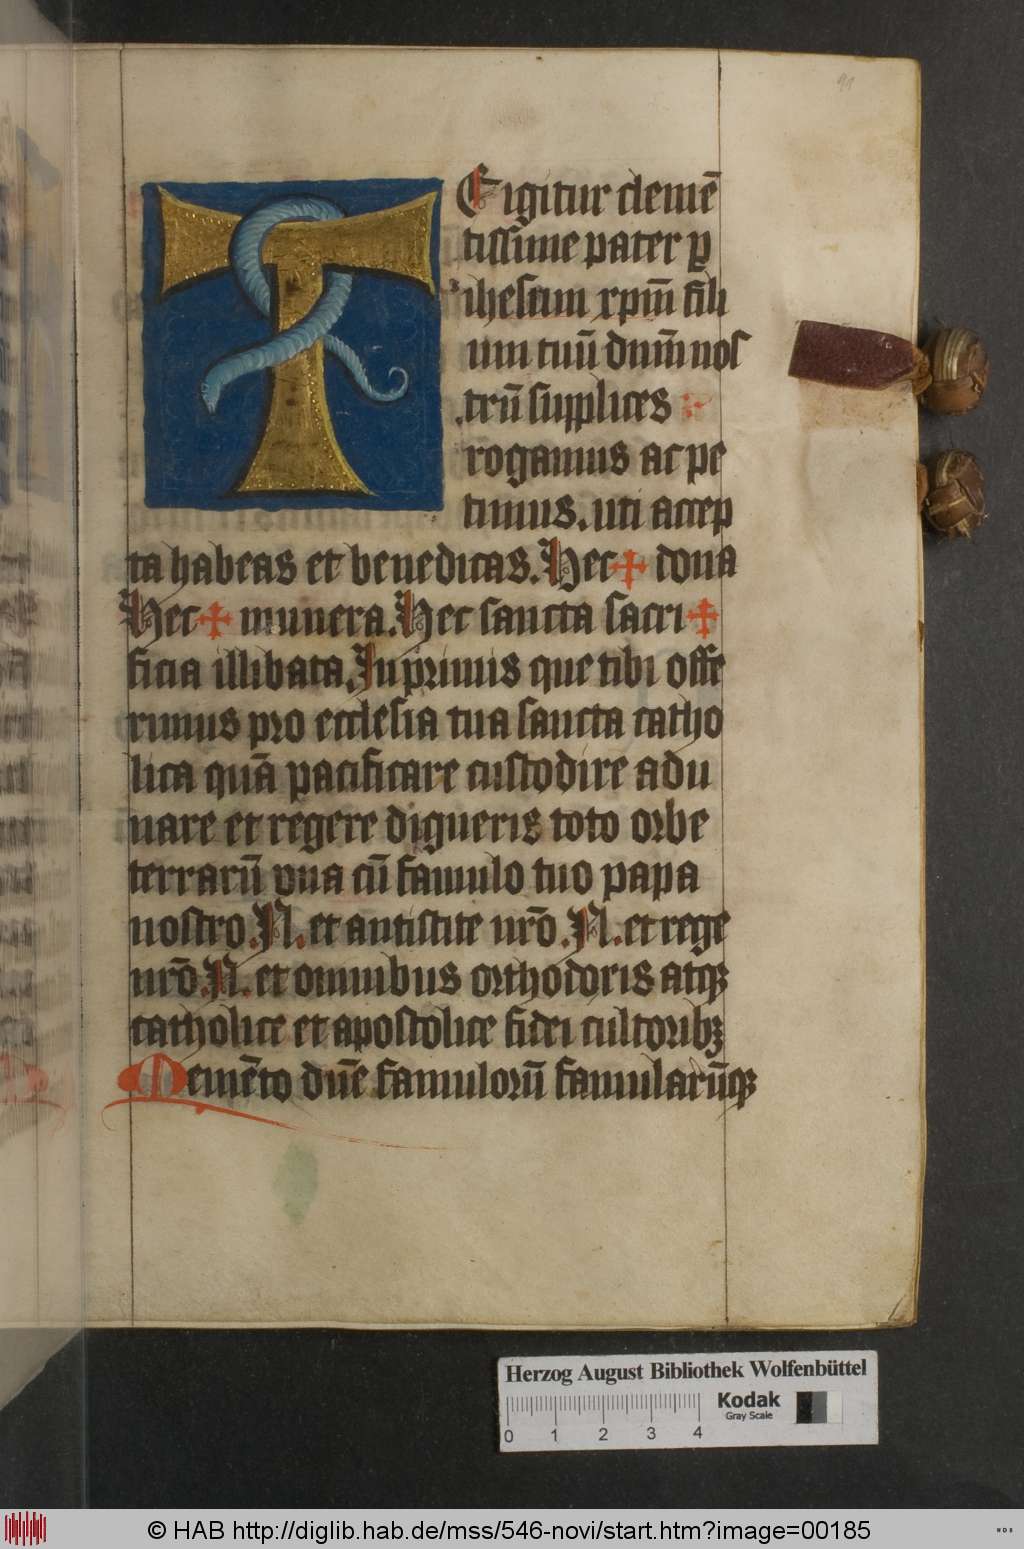 91
TE igitur clemē
tissime pater ꝑ
ihesum xpm̄ fili
um tuū dnm̄ nos
trū supplices
rogamus ac pe
timus. uti accep
ta habeas et benedicas. Hec ✝ dona
Hec ✝ munera. Hec sancta sacri ✝
ficia illibata. In primis que tibi offe
rimus pro ecclesia tua sancta catho
lica quā pacificare custodire adu
nare et regere digneris toto orbe
terrarū vna cū famulo tuo papa
nostro .N. et antistite nr̄o .N. et rege
nr̄o .N. et omnibus orthodoxis atqꝫ
catholice et apostolice fidei cultoribꝫ
Memēto dn̄e famulorū famularūqꝫ
Herzog August Bibliothek Wolfenbüttel
Kodak
Gray Scale
0 1 2 3 4
© HAB http://diglib.hab.de/mss/546-novi/start.htm?image=00185